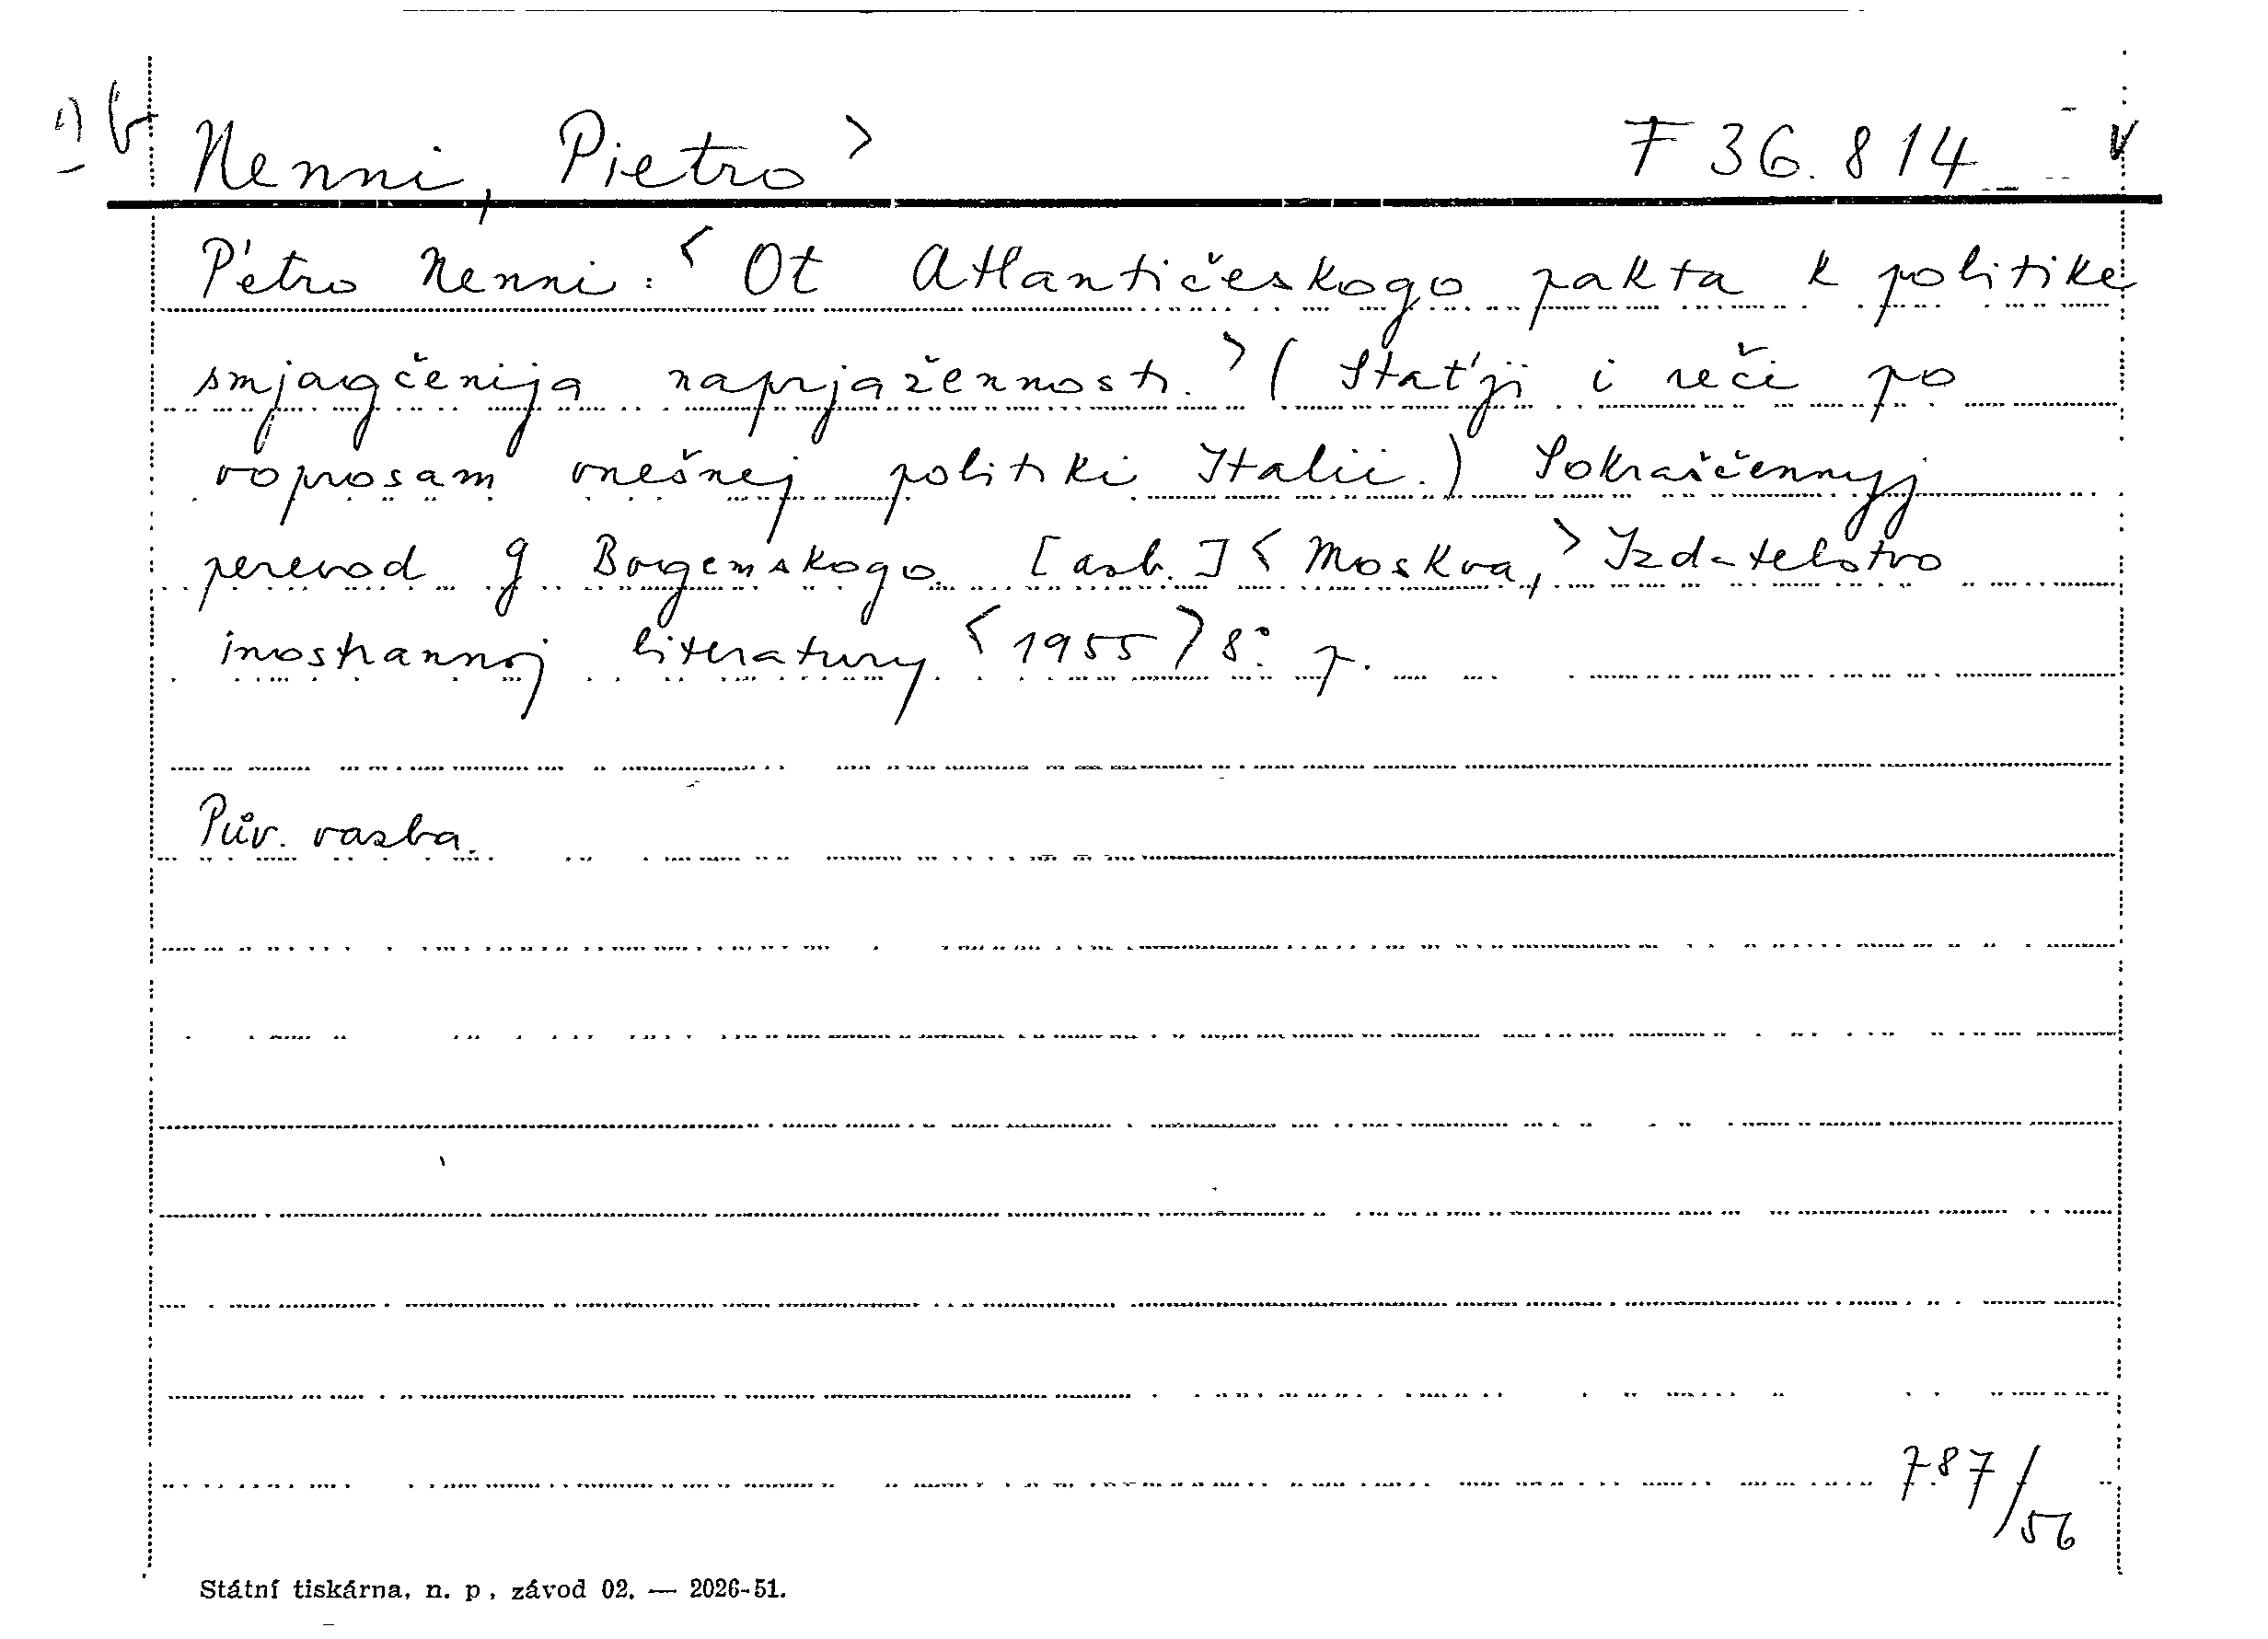 Nenni, Pietro > F 36.814 v
P'etro Nenni: < Ot Atlantičeskogo pakta k politike
smjagčenija naprjažennosti. > (Stat'ji i reči po
voprosam vnešnej politiki Italii.) Sokraščennyj
perevod G Bogemskogo. [asb.] < Moskva, > Izdatelstvo
inostrannoj literatury < 1955 > 8° p.
Pův. vazba.
787/56
Státní tiskárna, n. p., závod 02. — 2026-51.